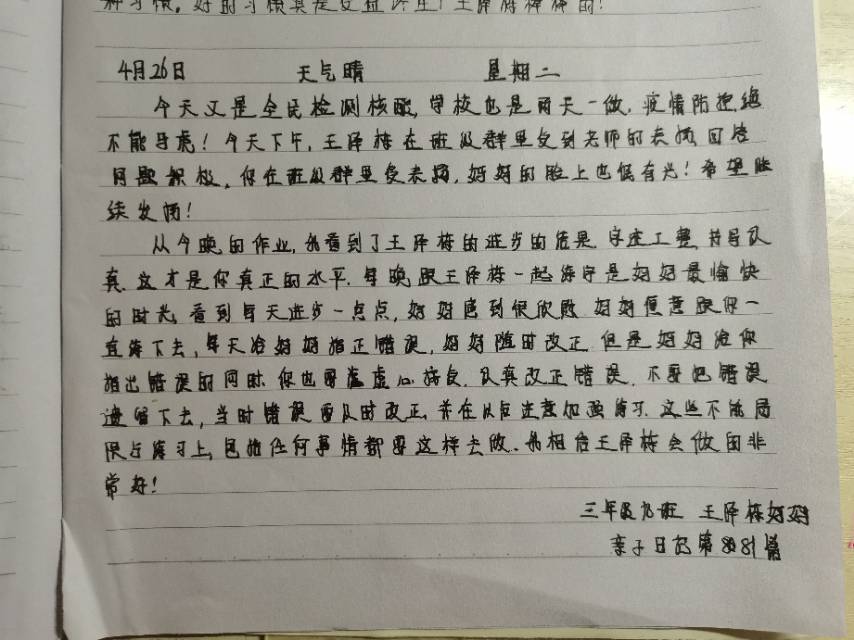 种习惯，好的习惯真是受益终生！王泽栋棒棒的！
4月26日 天气晴 星期二
今天又是全民检测核酸，学校也是两天一做，疫情防控绝
不能马虎！今天下午，王泽栋在班级群里受到老师的表扬，回答
问题积极，你在班级群里受表扬，妈妈的脸上也很有光！希望继
续发扬！
从今晚的作业，我看到了王泽栋的进步的结果，字迹工整，书写认
真，这才是你真正的水平，每晚跟王泽栋一起练字是妈妈最愉快
的时光，看到每天进步一点点，妈妈感到很欣慰，妈妈愿意跟你一
直练下去，每天给妈妈指正错误，妈妈随时改正，但是妈妈给你
指出错误的同时，你也要虚心接受，认真改正错误，不要把错误
遗留下去，当时错误要及时改正，并在以后注意加强练习，这些不能局
限与练习上，包括任何事情都要这样去做，我相信王泽栋会做的非
常好！
三年级九班 王泽栋妈妈
亲子日记第881篇